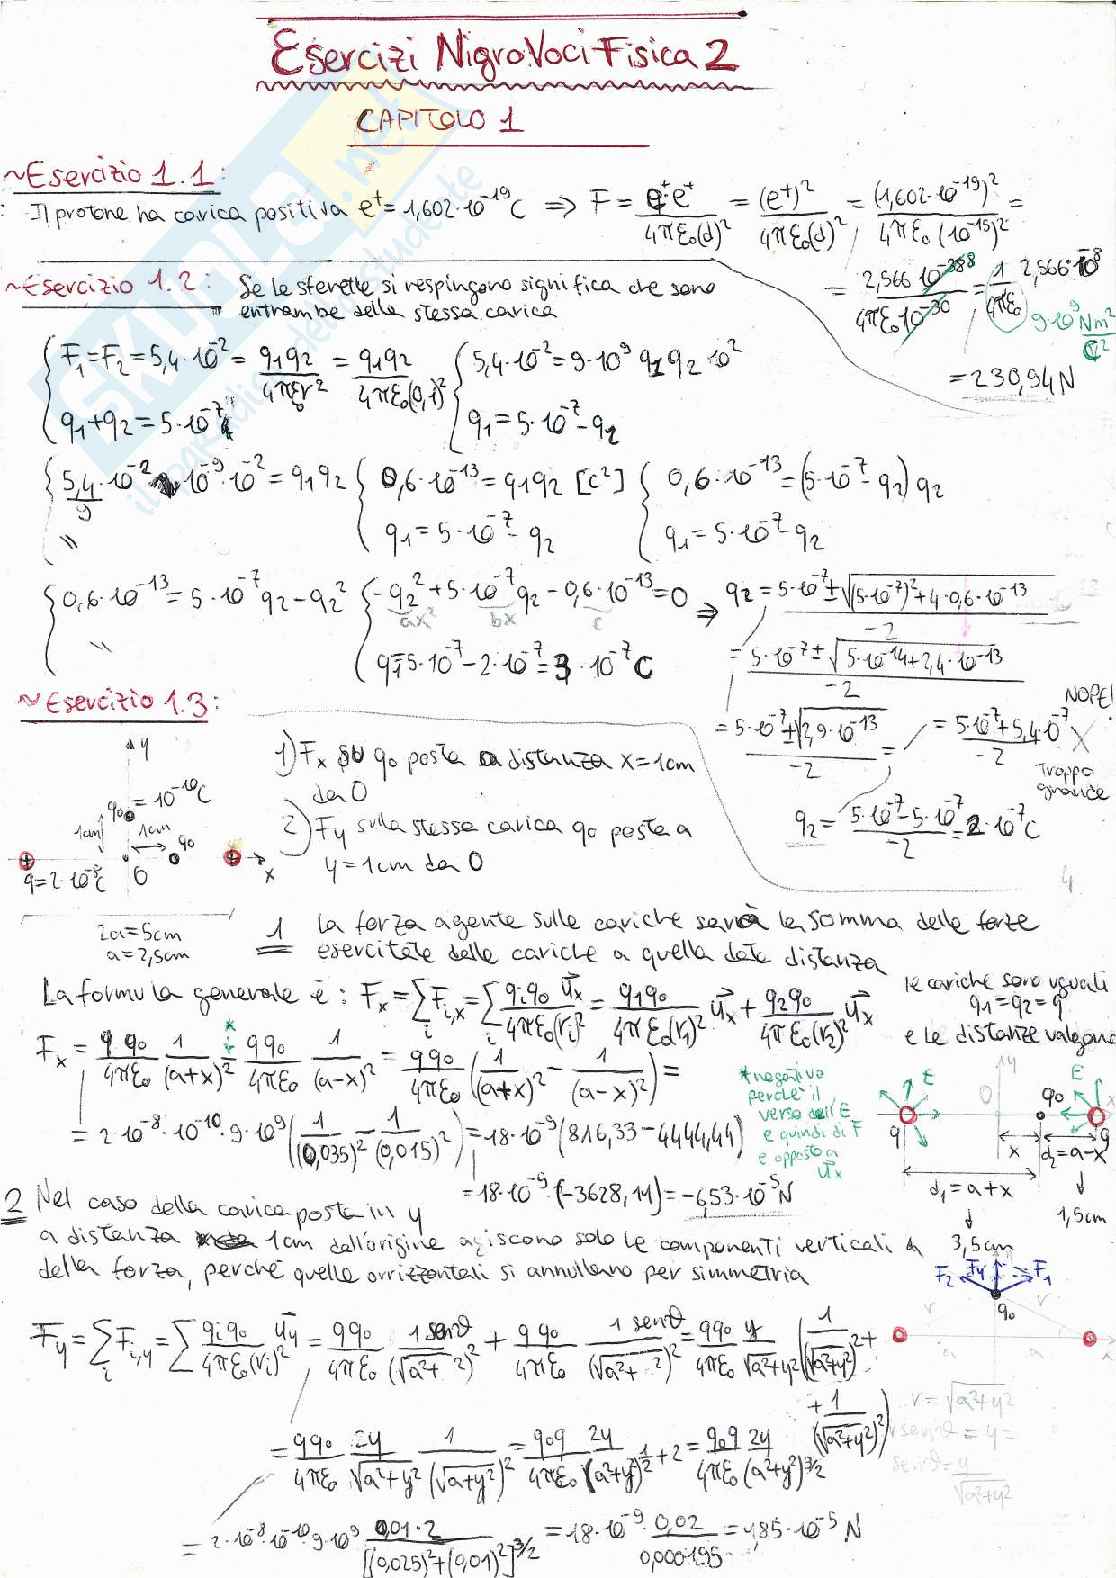 Esercizi Nigro Voci Fisica 2
CAPITOLO 1
~Esercizio 1.1:
Il protone ha carica positiva e⁺=1,602·10⁻¹⁹C ⇒ F = e⁺e⁺/4πε₀(d)² = (e⁺)²/4πε₀(d)² = (1,602·10⁻¹⁹)²/4πε₀(10⁻¹⁵)² =
= 2,566 10⁻³⁸/4πε₀10⁻³⁰ = 1/4πε₀ 2,566·10⁻⁸
9·10⁹ Nm²/C²
= 230,94 N
~Esercizio 1.2: Se le sferette si respingono significa che sono
entrambe della stessa carica
F₁=F₂=5,4·10⁻² = q₁q₂/4πε₀r² = q₁q₂/4πε₀(0,1)² { 5,4·10⁻²=9·10⁹ q₁q₂ 10²
q₁+q₂=5·10⁻⁷ { q₁=5·10⁻⁷-q₂
5,4/9·10⁻² 10⁻⁹·10⁻²=q₁q₂ { 0,6·10⁻¹³=q₁q₂ [C²] { 0,6·10⁻¹³=(5·10⁻⁷-q₂)q₂
" { q₁=5·10⁻⁷-q₂ { q₁=5·10⁻⁷-q₂
0,6·10⁻¹³=5·10⁻⁷q₂-q₂² { -q₂²+5·10⁻⁷q₂-0,6·10⁻¹³=0 ⇒ q₂=5·10⁻⁷±√(5·10⁻⁷)²+4·0,6·10⁻¹³/-2
ax² bx c
" { q₁=5·10⁻⁷-2·10⁻⁷=3·10⁻⁷C
= 5·10⁻⁷±√5·10⁻¹⁴+2,4·10⁻¹³/-2
= 5·10⁻⁷±√2,9·10⁻¹³/-2 = = 5·10⁻⁷+5,4·10⁻⁷/-2 X
NOPE!
Troppo
grande
q₂= 5·10⁻⁷-5·10⁻⁷/-2 = 2·10⁻⁷C
~Esercizio 1.3:
y
q₀=10⁻¹⁰C
1cm 1cm q₀
q=2·10⁻⁸C O x
2a=5cm
a=2,5cm
1) Fx su q₀ posta a distanza x=1cm
da O
2) Fy sulla stessa carica q₀ posta a
y=1cm da O
1 la forza agente sulle cariche sarà la somma delle forze
esercitate delle cariche a quella data distanza
La formula generale è: Fx=∑Fi,x=∑ qiq₀/4πε₀(ri)² ux = q₁q₀/4πε₀(r₁)² ux + q₂q₀/4πε₀(r₂)² ux
le cariche sono uguali
q₁=q₂=q
e le distanze valgono
Fx= q q₀/4πε₀ 1/(a+x)² - qq₀/4πε₀ 1/(a-x)² = qq₀/4πε₀ (1/(a+x)² - 1/(a-x)²) =
*negativo
perché il
verso dell'E
e quindi di F
è opposto a
ux
E y O q₀ E x
q x d₂=a-x q
d₁=a+x 1,5cm
3,5cm
= 2·10⁻⁸·10⁻¹⁰·9·10⁹ (1/(0,035)² - 1/(0,015)²) = 18·10⁻⁹(816,33-4444,44)
= 18·10⁻⁹·(-3628,11) = -6,53·10⁻⁵N
2 Nel caso della carica posta in y
a distanza 1cm dall'origine agiscono solo le componenti verticali
della forza, perché quelle orizzontali si annullano per simmetria
F₂ Fy F₁
q₀
r r
a a
Fy=∑Fi,y=∑ qiq₀/4πε₀(ri)² uy = qq₀/4πε₀ 1senϑ/(√a²+ ²)² + qq₀/4πε₀ 1senϑ/(√a²+ ²)² = qq₀/4πε₀ y/√a²+y² (1/(√a²+y²)² +
+ 1/(√a²+y²)²)
r=√a²+y²
rsenϑ=y=
senϑ= y/√a²+y²
= qq₀/4πε₀ 2y/√a²+y² 1/(√a+y²)² = q₀q/4πε₀ 2y/(a²+y²)^½+2 = q₀q/4πε₀ 2y/(a²+y²)^3/2
= 2·10⁻⁸·10⁻¹⁰·9·10⁹ 0,01·2/[(0,025)²+(0,01)²]^3/2 = 18·10⁻⁹ 0,02/0,0000195 = 1,85·10⁻⁵N